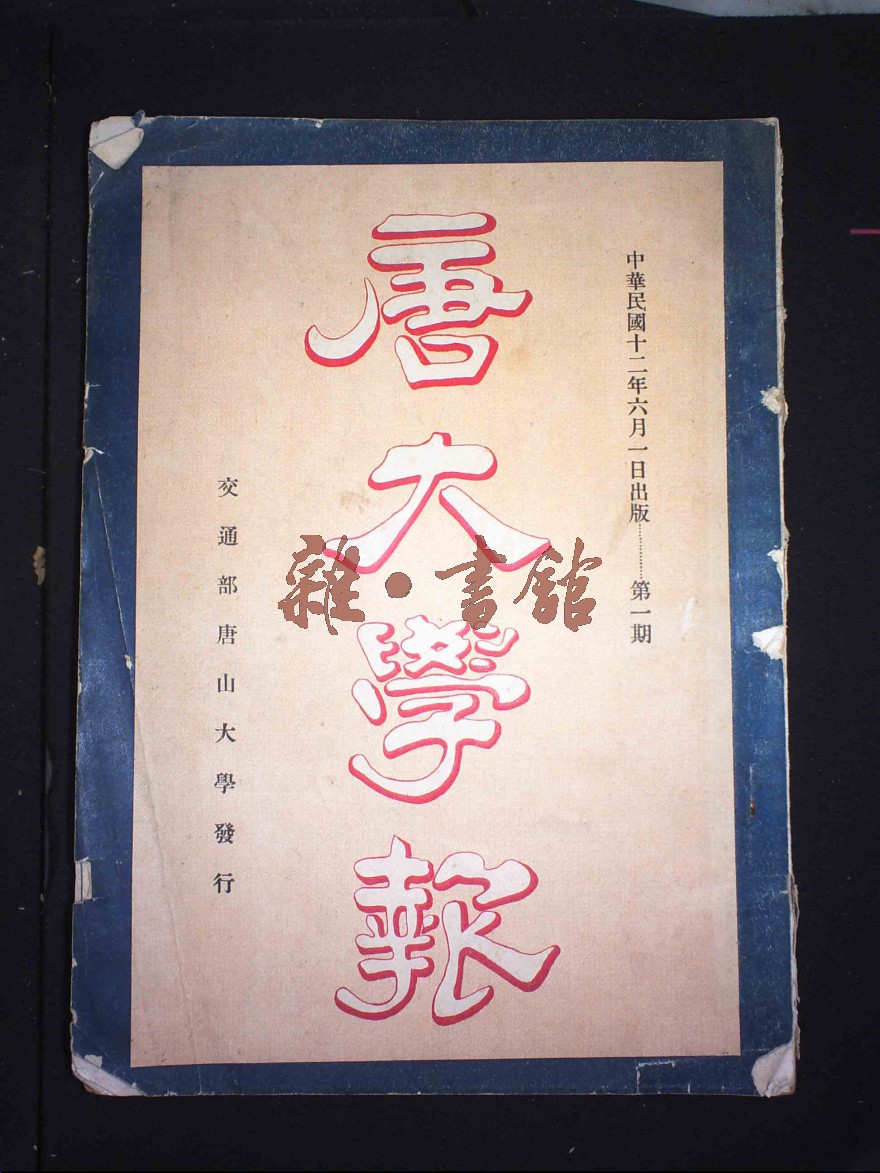 中華民國十二年六月一日出版……………第一期
唐大學報
交通部唐山大學發行
雜·書館